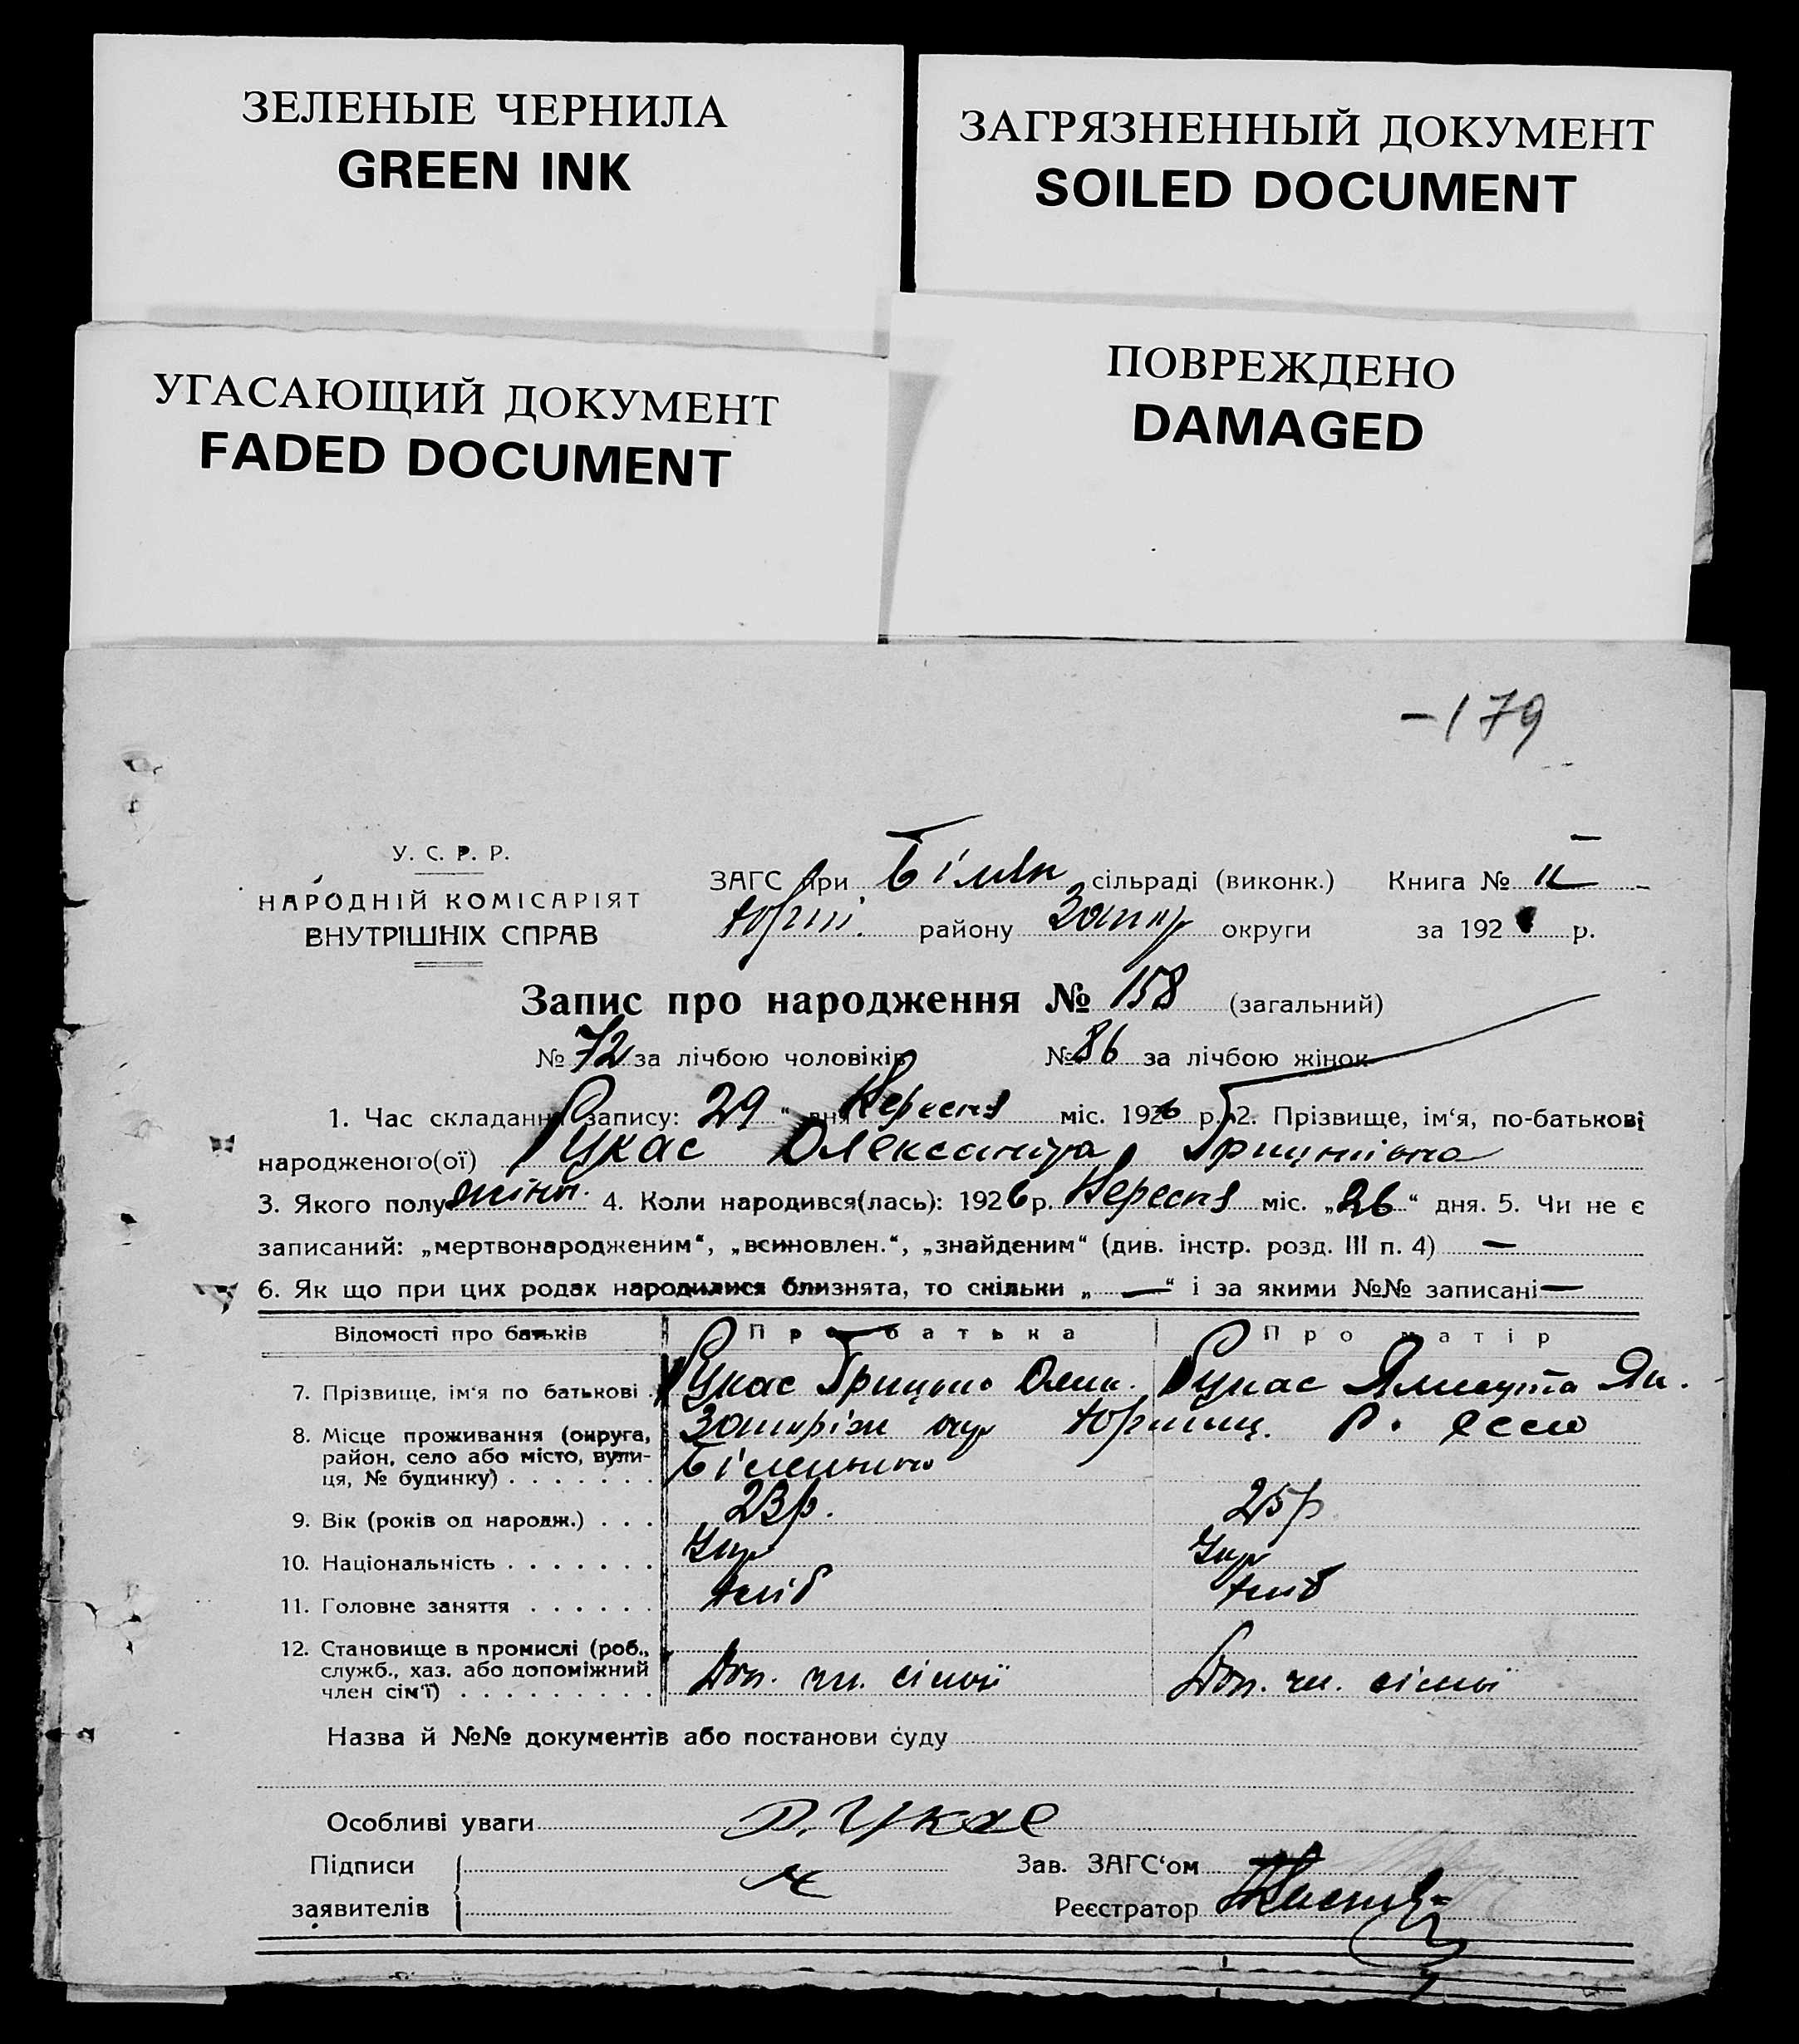 ЗЕЛЕНЫЕ ЧЕРНИЛА
GREEN INK
ЗАГРЯЗНЕННЫЙ ДОКУМЕНТ
SOILED DOCUMENT
УГАСАЮЩИЙ ДОКУМЕНТ
FADED DOCUMENT
ПОВРЕЖДЕНО
DAMAGED
-179
У. С. Р. Р.
НАРОДНІЙ КОМІСАРІЯТ
ВНУТРІШНІХ СПРАВ
ЗАГС при сільраді (виконк.) Книга № II
району округи за 192 р.
Запис про народження № 158 (загальний)
№ 72 за лічбою чоловіків № 86 за лічбою жінок
1. Час складання запису: 29 " дня Вересня міс. 1926 р. 2. Прізвище, ім‘я, по-батькові
народженого(ої) Рукас Олександра Грицьківна
3. Якого полу жіноч. 4. Коли народився(лась): 1926 р. Вересня міс. „26“ дня. 5. Чи не є
записаний: „мертвонародженим“, „всиновлен.“, „знайденим“ (див. інстр. розд. III п. 4) —
6. Як що при цих родах народилися близнята, то скільки „—“ і за якими №№ записані —
Відомості про батьків Про батька Про матір
7. Прізвище, ім‘я по батькові . Рукас Грицько Олек. Рукас
8. Місце проживання (округа, район, село або місто, вули-ця, № будинку) . . . . . . . Запоріж окр р. село
9. Вік (років од народж.) . . . 23 р. 25 р
10. Національність . . . . . . . Укр Укр
11. Головне заняття . . . . . . хліб хліб
12. Становище в промислі (роб., служб., хаз. або допоміжний член сім‘ї) . . . . . . . . . Доп. чл. сімьї Доп. чл. сімьї
Назва й №№ документів або постанови суду
Особливі уваги Рукас
Підписи
заявителів
Зав. ЗАГС‘ом
Реєстратор